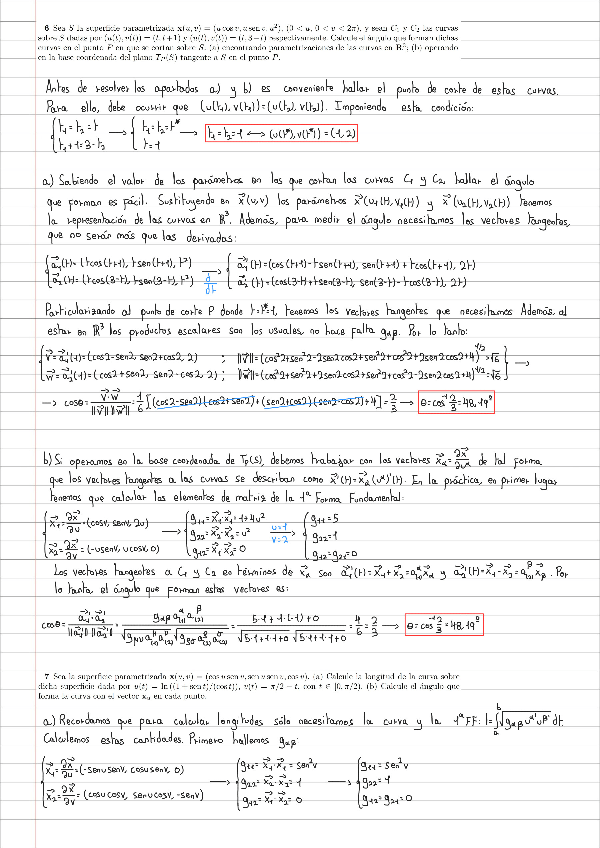 6 Sea S la superficie parametrizada x(u, v) = (u cos v, u sen v, u²), (0 < u, 0 < v < 2π), y sean C₁ y C₂ las curvas
sobre S dadas por (u(t), v(t)) = (t, t+1) y (u(t), v(t)) = (t, 3−t) respectivamente. Calcule el ángulo que forman dichas
curvas en el punto P en que se cortan sobre S. (a) encontrando parametrizaciones de las curvas en R³; (b) operando
en la base coordenada del plano T_P(S) tangente a S en el punto P.
Antes de resolver los apartados a) y b) es conveniente hallar el punto de corte de estas curvas.
Para ello, debe ocurrir que (u(t₁), v(t₁)) = (u(t₂), v(t₂)). Imponiendo esta condición:
{ t₁ = t₂ = t → { t₁ = t₂ = t* → t₁ = t₂ = 1 ↔ (u(t*), v(t*)) = (1, 2)
t₁ + 1 = 3 - t₂ t = 1
a) Sabiendo el valor de los parámetros en los que cortan las curvas C₁ y C₂, hallar el ángulo
que forman es fácil. Sustituyendo en x⃗(u,v) los parámetros x⃗(u₁(t), v₁(t)) y x⃗(u₂(t), v₂(t)) tenemos
la representación de las curvas en ℝ³. Además, para medir el ángulo necesitamos los vectores tangentes,
que no serán más que las derivadas:
{ a⃗₁(t) = (t cos(t+1), t sen(t+1), t²) → { a⃗₁'(t) = (cos(t+1) - t sen(t+1), sen(t+1) + t cos(t+1), 2t)
a⃗₂(t) = (t cos(3-t), t sen(3-t), t²) d/dt a⃗₂'(t) = (cos(3-t) + t sen(3-t), sen(3-t) - t cos(3-t), 2t)
Particularizando al punto de corte P donde t = t* = 1, tenemos los vectores tangentes que necesitamos. Además, al
estar en ℝ³ los productos escalares son los usuales, no hace falta gαβ. Por lo tanto:
{ v⃗ = a⃗₁'(1) = (cos2 - sen2, sen2 + cos2, 2) ; ‖v⃗‖ = (cos²2 + sen²2 - 2sen2cos2 + sen²2 + cos²2 + 2sen2cos2 + 4)^1/2 = √6 →
w⃗ = a⃗₂'(1) = (cos2 + sen2, sen2 - cos2, 2) ; ‖w⃗‖ = (cos²2 + sen²2 + 2sen2cos2 + sen²2 + cos²2 - 2sen2cos2 + 4)^1/2 = √6
→ cosθ = v⃗·w⃗ / ‖v⃗‖‖w⃗‖ = 1/6 [(cos2 - sen2)(cos2 + sen2) + (sen2 + cos2)(sen2 - cos2) + 4] = 2/3 → θ = cos⁻¹ 2/3 = 48.19°
b) Si operamos en la base coordenada de Tp(S), debemos trabajar con los vectores x⃗α = ∂x⃗/∂uα de tal forma
que los vectores tangentes a las curvas se describan como x⃗'(t) = x⃗α (uα)'(t). En la práctica, en primer lugar
tenemos que calcular los elementos de matriz de la 1ª Forma Fundamental:
{ x⃗₁ = ∂x⃗/∂u = (cosv, senv, 2u) → { g₁₁ = x⃗₁·x⃗₁ = 1 + 4u² u=1 → { g₁₁ = 5
g₂₂ = x⃗₂·x⃗₂ = u² v=2 g₂₂ = 1
x⃗₂ = ∂x⃗/∂v = (-usenv, ucosv, 0) g₁₂ = x⃗₁·x⃗₂ = 0 g₁₂ = g₂₁ = 0
Los vectores tangentes a C₁ y C₂ en términos de x⃗α son a⃗₁'(t) = x⃗₁ + x⃗₂ = a₍₁₎^α x⃗α y a⃗₂'(t) = x⃗₁ - x⃗₂ = a₍₂₎^β x⃗β. Por
lo tanto, el ángulo que forman estos vectores es:
cosθ = a⃗₁'·a⃗₂' / ‖a⃗₁'‖‖a⃗₂'‖ = gαβ a₍₁₎^α a₍₂₎^β / √(gμν a₍₁₎^μ a₍₁₎^ν) √(gρσ a₍₂₎^ρ a₍₂₎^σ) = 5·1 + 1·1·(-1) + 0 / √(5·1 + 1·1 + 0) √(5·1 + 1·1 + 0) = 4/6 = 2/3 → θ = cos⁻¹ 2/3 = 48.19°
7 Sea la superficie parametrizada x(u, v) = (cos u sen v, sen u sen v, cos v). (a) Calcule la longitud de la curva sobre
dicha superficie dada por u(t) = ln((1 − sen t)/(cos t)), v(t) = π/2 − t, con t ∈ [0, π/2). (b) Calcule el ángulo que
forma la curva con el vector xᵤ en cada punto.
a) Recordamos que para calcular longitudes sólo necesitamos la curva y la 1ª FF: l = ∫ₐᵇ √(gαβ uα' uβ') dt.
Calculemos estas cantidades. Primero hallemos gαβ:
{ x⃗₁ = ∂x⃗/∂u = (-senusenv, cosusenv, 0) → { g₁₁ = x⃗₁·x⃗₁ = sen²v → { g₁₁ = sen²v
g₂₂ = x⃗₂·x⃗₂ = 1 g₂₂ = 1
x⃗₂ = ∂x⃗/∂v = (cosucosv, senucosv, -senv) g₁₂ = x⃗₁·x⃗₂ = 0 g₁₂ = g₂₁ = 0